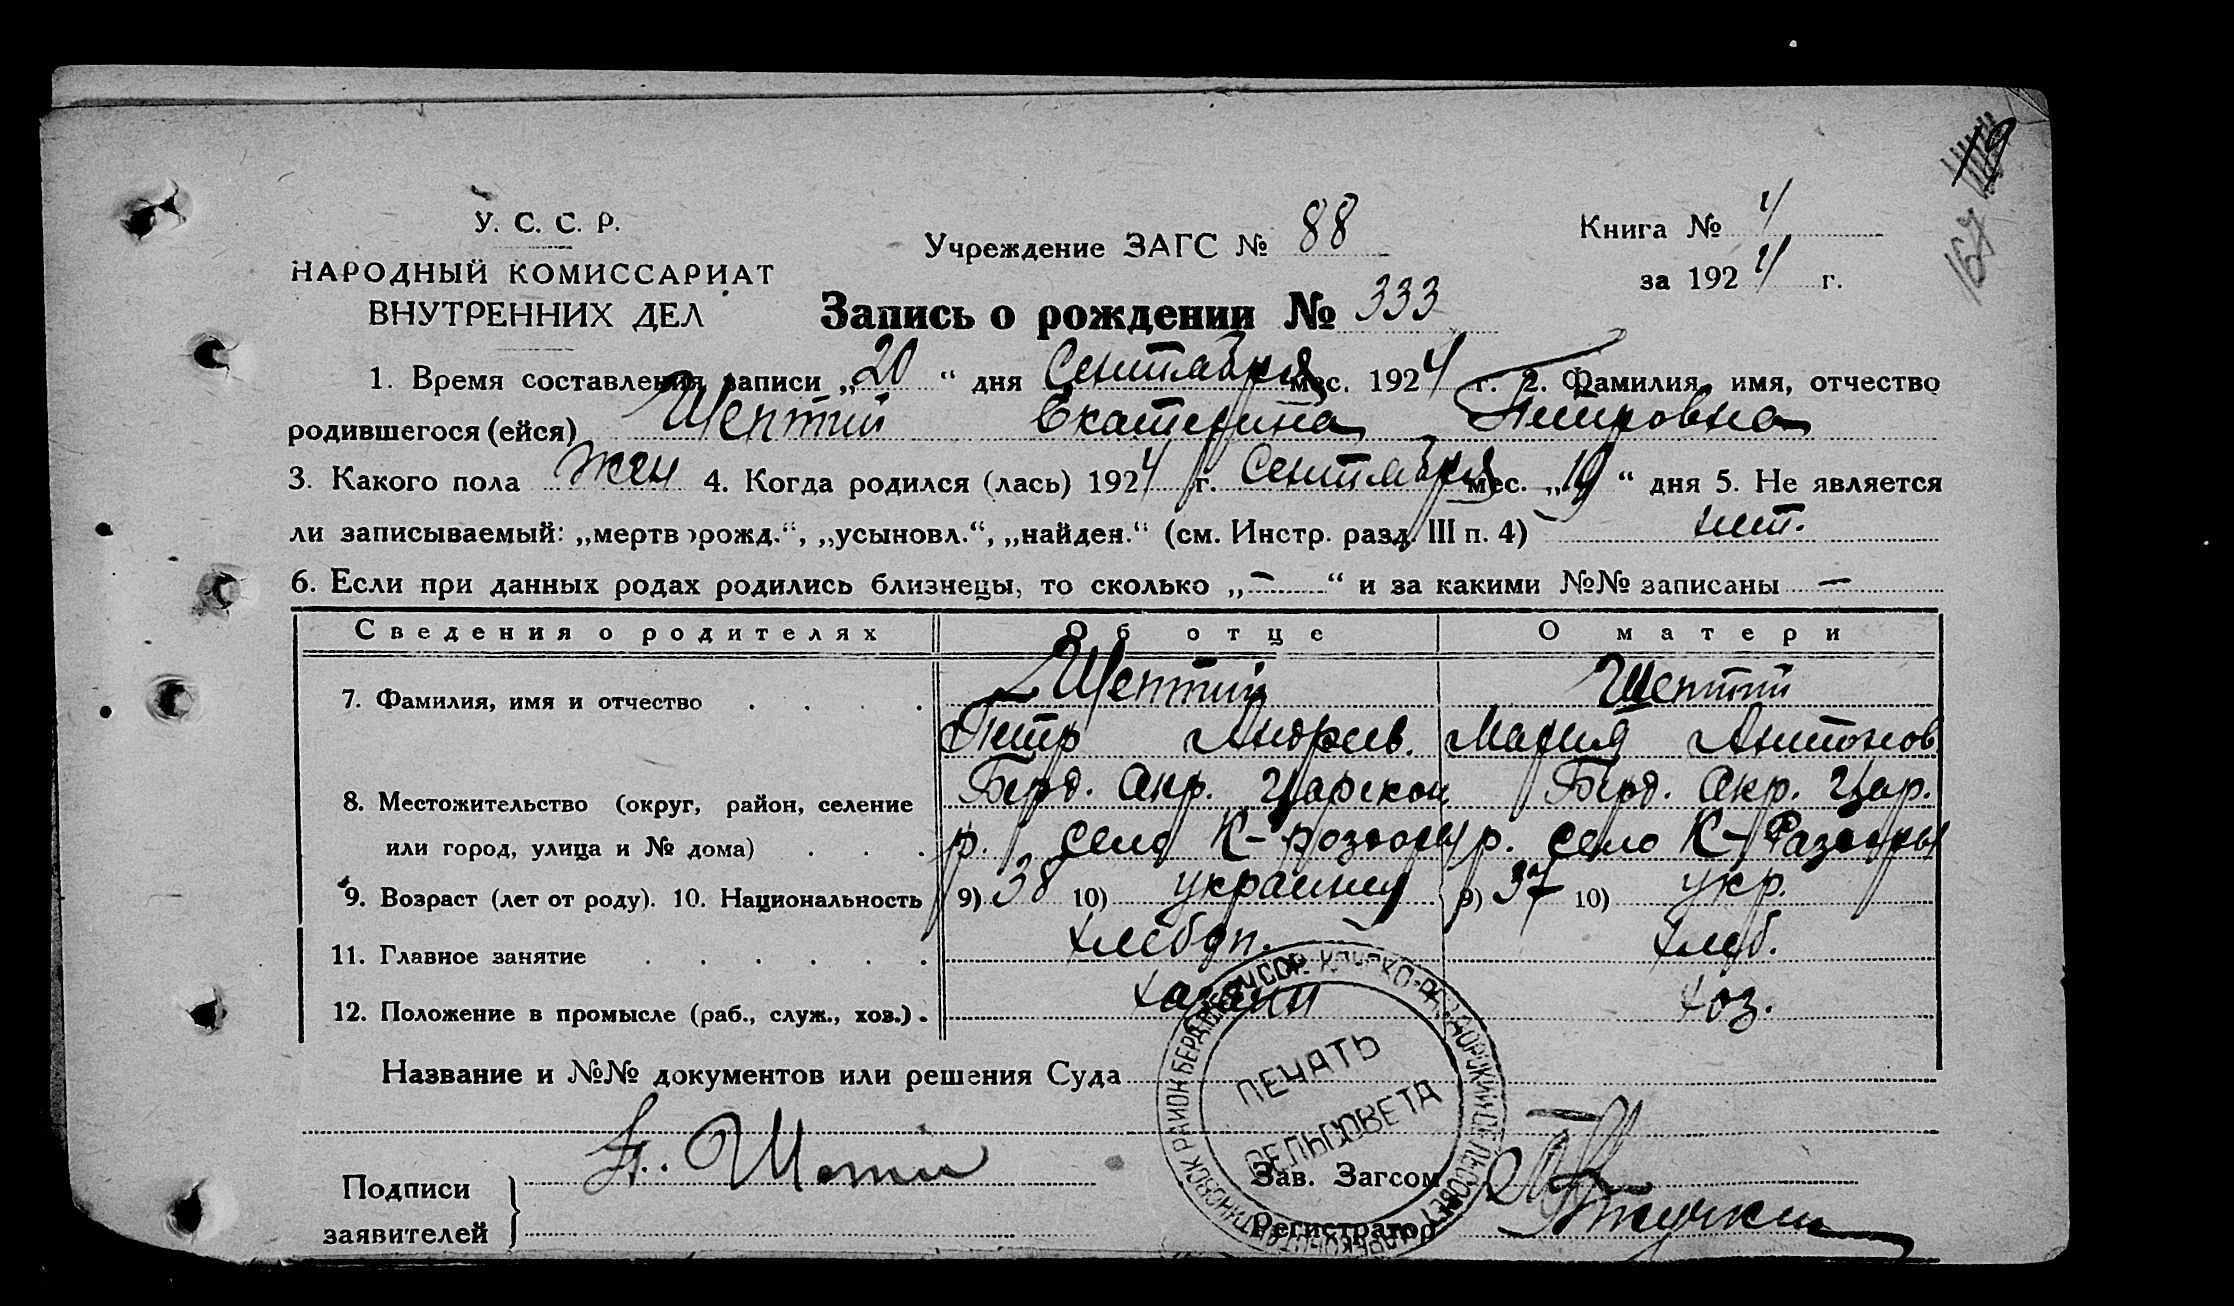 У. С. С. Р.
НАРОДНЫЙ КОМИССАРИАТ
ВНУТРЕННИХ ДЕЛ
Учреждение ЗАГС № 88
Книга № 4
за 1924 г.
167
Запись о рождении № 333
1. Время составления записи „20“ дня Сентября мес. 1924 г. 2. Фамилия, имя, отчество
родившегося (ейся) Шептий Екатерина Петровна
3. Какого пола жен 4. Когда родился (лась) 1924 г. Сентября мес. „19“ дня 5. Не является
ли записываемый: „мертворожд.“, „усыновл.“, „найден.“ (см. Инстр. разд. III п. 4) нет.
6. Если при данных родах родились близнецы, то сколько „—“ и за какими №№ записаны —
Сведения о родителях Об отце О матери
7. Фамилия, имя и отчество . . . . Шептий Шептий
Петр Андреев. Мария Антонов
8. Местожительство (округ, район, селение Берд. Окр. Царекон Берд. Окр. Цар.
или город, улица и № дома) . . . р. село К-розторы р. село К-Разторы
9. Возраст (лет от роду). 10. Национальность 9) 38 10) украинец 9) 37 10) укр.
11. Главное занятие . . . . . . хлебоп. хлеб.
12. Положение в промысле (раб., служ., хоз.) . хозяин хоз.
Название и №№ документов или решения Суда
ПЕЧАТЬ
СЕЛЬСОВЕТА
Подписи
заявителей
Зав. Загсом
Регистратор